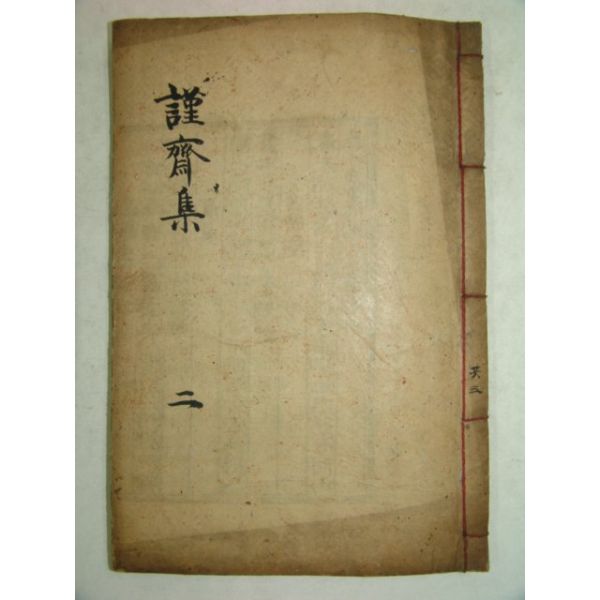 謹齋集
二
共三